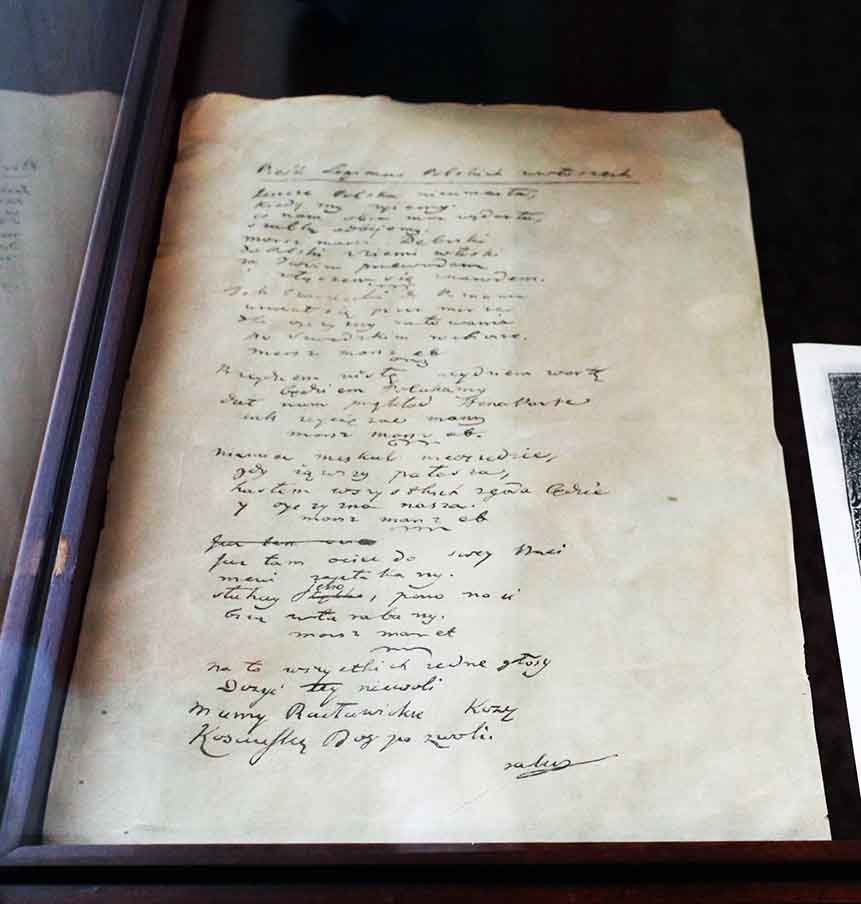 Pieśń Legionów Polskich we włoszech
Jeszcze Polska nieumarła,
kiedy my żyiemy.
co nam obca moc wydarła,
szablą odbijemy.
marsz marsz Dąbrowski
do Polski z ziemi włoski
za Twoim przewodem
złączem się z narodem.
Jak Czarnecki do Poznania
wracał się przez morze
dla oyczyzny ratowania
po Szwedzkim rozbiorze.
marsz marsz etc
Przejdziem Wisłę przejdziem Wartę
będziem Polakami
dał nam przykład Bonaparte
jak zwyciężać mamy
marsz marsz etc.
niemiec moskal nieosiędzie,
gdy iąwszy pałasza,
hasłem wszystkich zgoda będzie
y oyczyzna nasza.
marsz marsz etc
Już tam
Już tam ociec do swey Basi
mówi zapłakany.
słuchay jeno, pono nasi
biią w tarabany.
marsz marsz etc
na to wszystkich jedne głosy
Dosyć tey niewoli
mamy Racławickie Kosy
Kościuszkę Bog pozwoli.